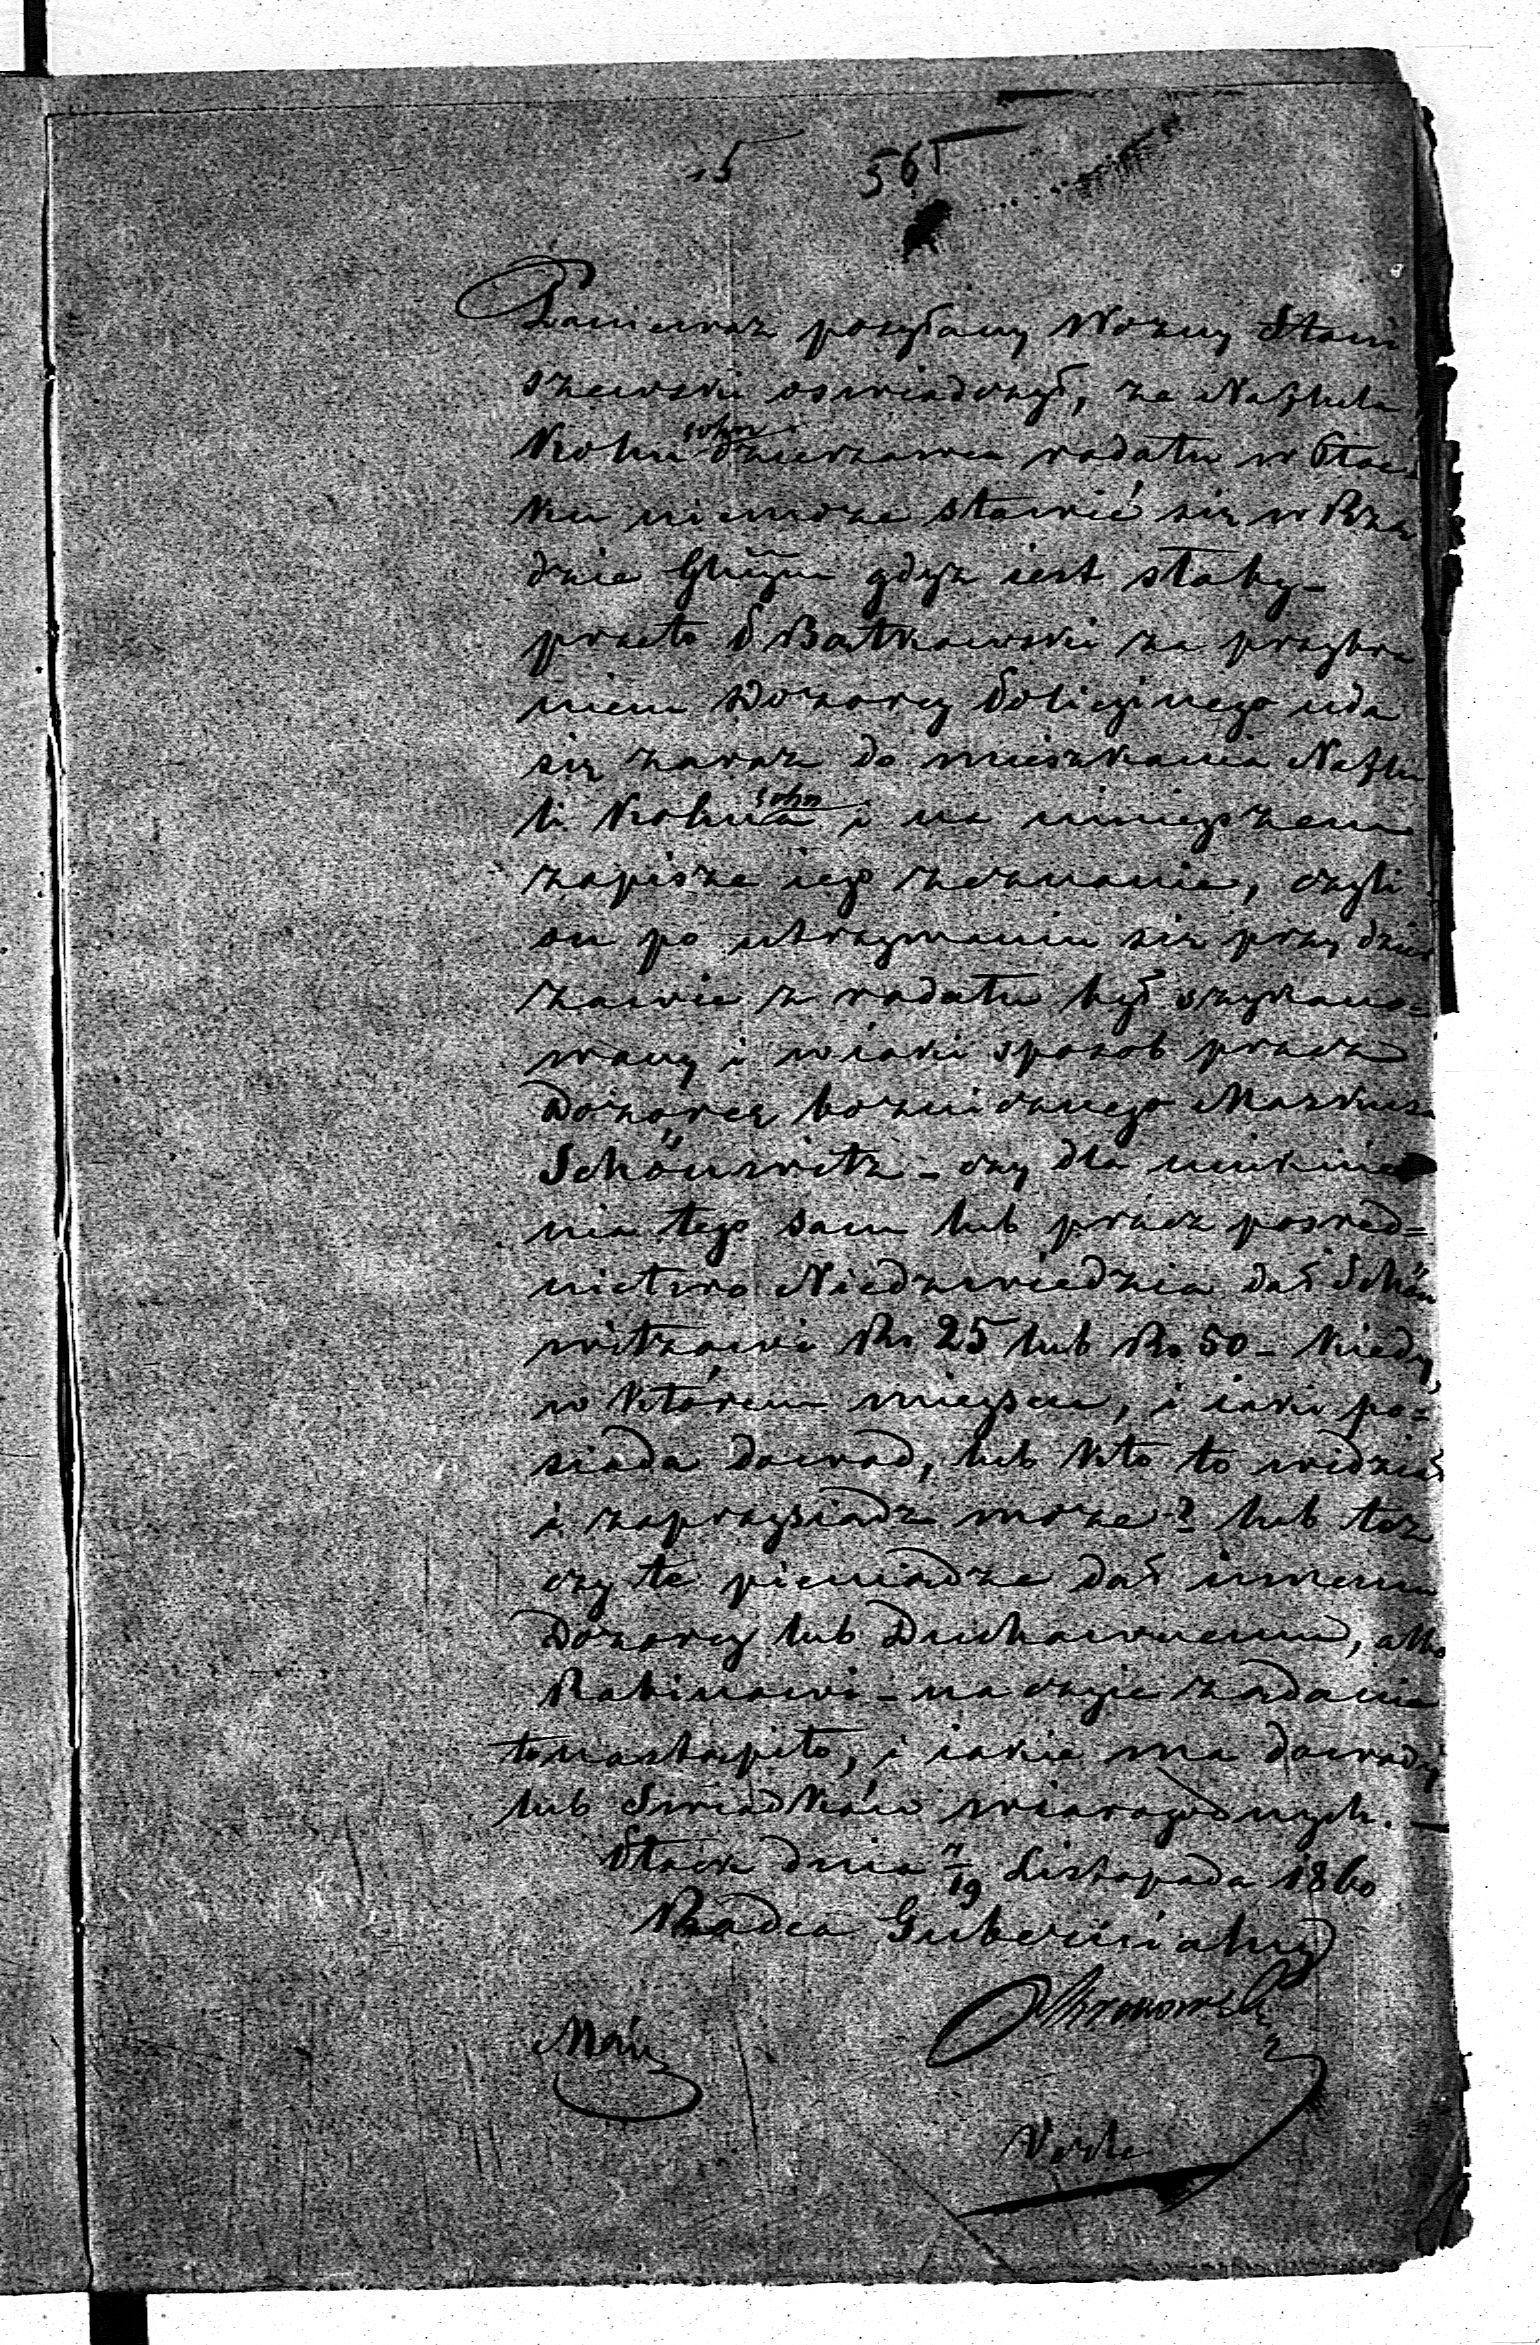 15 565
Poniewaz posyłany Wozny Stani
szewski oswiadczył, że Naftula
Kohnsohn dzierzawca rodału w Płoc
ku niemoze stawić się w Rzą
dzie Gunym gdyz iest słaby –
przeto P. Bartkowski za przybra
niem Dozorcy Policyinego uda
się zaraz do mieszkania Naftu
li Kohnsohna i na niniejszem
zapisze iego zeznanie, czyli
on po utrzymaniu się przy dzier
zawie z rodału był szykano=
wany i w iaki sposob przez
Dozorcę boznicznego Markusa
Schönwitz – czy dla uniknie
nia tego sam lub przez posred=
nictwo Niedzwiedzia dał Schön
witzowi Rs 25 lub Rs 50 – kiedy,
w którem miejscu, i iaki po=
siada dowod, lub kto to widział
i zaprzysiądz moze? lub tez
czy te pieniądze dał innemu
Dozorcy lub Duchownemu, albo
Rabinowi – na czyie ządanie
to nastąpiło, i iakie ma dowody
lub Swiadków wiarogodnych. –
Płock dnia 7/19 Listopada 1860
Radca Gubernialny